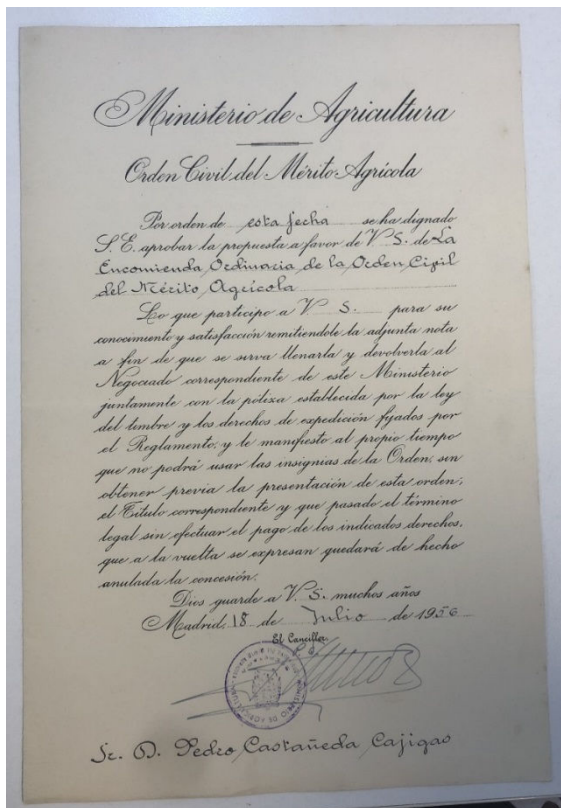 Ministerio de Agricultura
Orden Civil del Mérito Agrícola
Por orden de esta fecha se ha dignado
S. E. aprobar la propuesta a favor de V. S. de La
Encomienda Ordinaria de la Orden Civil
del Mérito Agrícola
Lo que participo a V. S. para su
conocimiento y satisfacción remitiendole la adjunta nota
a fin de que se sirva llenarla y devolverla al
Negociado correspondiente de este Ministerio
juntamente con la póliza establecida por la ley
del timbre y los derechos de expedición fijados por
el Reglamento; y le manifiesto al propio tiempo
que no podrá usar las insignias de la Orden, sin
obtener previa la presentación de esta orden,
el Título correspondiente y que pasado el término
legal sin efectuar el pago de los indicados derechos,
que a la vuelta se expresan quedará de hecho
anulada la concesión.
Dios guarde a V. S. muchos años
Madrid, 18 de Julio de 1956
El Canciller,
Sr. D. Pedro Castañeda Cajigas